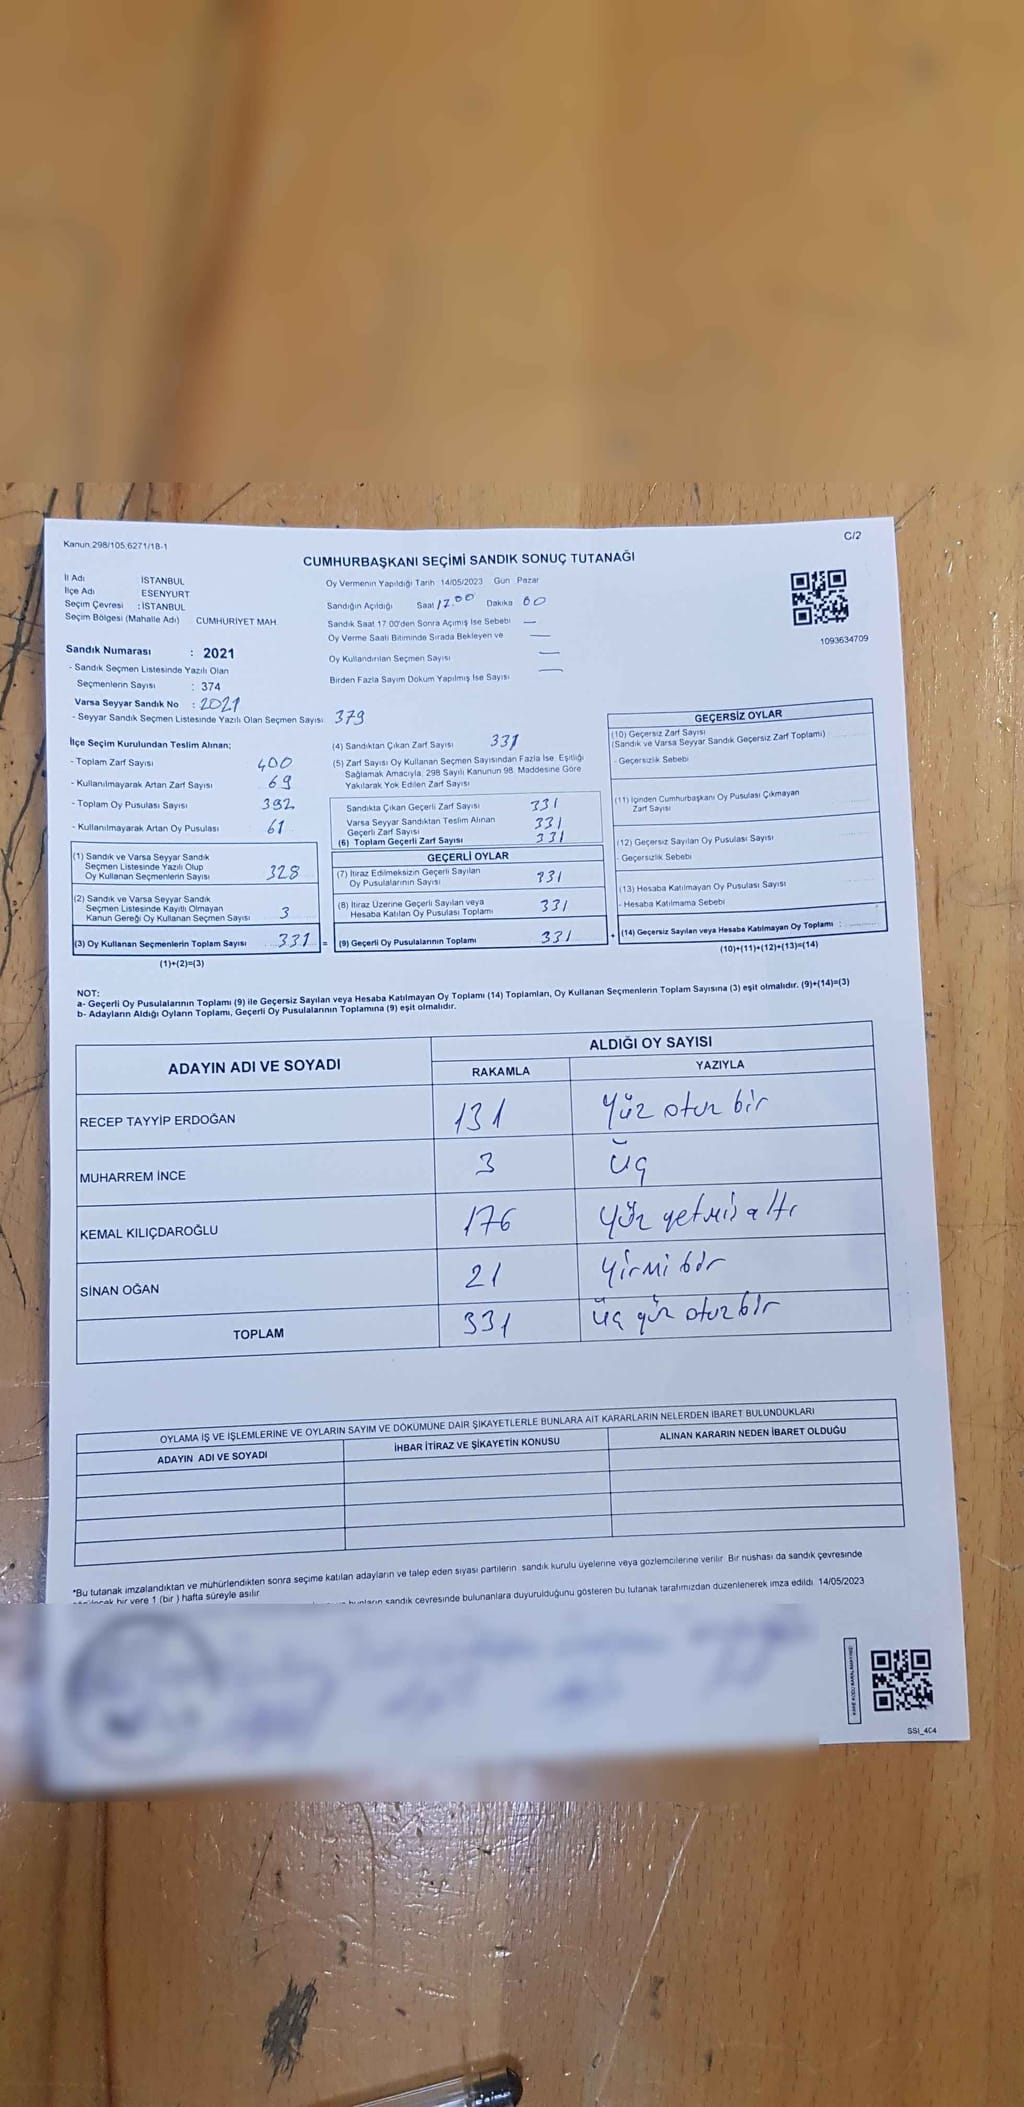 Kanun 298/105,6271/18-1
C/2
CUMHURBAŞKANI SEÇİMİ SANDIK SONUÇ TUTANAĞI
İl Adı İSTANBUL
İlçe Adı ESENYURT
Seçim Çevresi : İSTANBUL
Seçim Bölgesi (Mahalle Adı) CUMHURİYET MAH.
Oy Vermenin Yapıldığı Tarih 14/05/2023 Gün Pazar
Sandığın Açıldığı Saat 17.00 Dakika 00
Sandık Saat 17 00'den Sonra Açımış İse Sebebi —
Oy Verme Saati Bitiminde Sırada Bekleyen ve —
Oy Kullandırılan Seçmen Sayısı —
Birden Fazla Sayım Döküm Yapılmış İse Sayısı —
1093634709
Sandık Numarası : 2021
- Sandık Seçmen Listesinde Yazılı Olan
Seçmenlerin Sayısı : 374
Varsa Seyyar Sandık No : 2021
- Seyyar Sandık Seçmen Listesinde Yazılı Olan Seçmen Sayısı 379
İlçe Seçim Kurulundan Teslim Alınan;
- Toplam Zarf Sayısı 400
- Kullanılmayarak Artan Zarf Sayısı 69
- Toplam Oy Pusulası Sayısı 392
- Kullanılmayarak Artan Oy Pusulası 61
(1) Sandık ve Varsa Seyyar Sandık
Seçmen Listesinde Yazılı Olup
Oy Kullanan Seçmenlerin Sayısı 328
(2) Sandık ve Varsa Seyyar Sandık
Seçmen Listesinde Kayıtlı Olmayan
Kanun Gereği Oy Kullanan Seçmen Sayısı 3
(3) Oy Kullanan Seçmenlerin Toplam Sayısı 331 =
(1)+(2)=(3)
(4) Sandıktan Çıkan Zarf Sayısı 331
(5) Zarf Sayısı Oy Kullanan Seçmen Sayısından Fazla İse, Eşitliği
Sağlamak Amacıyla, 298 Sayılı Kanunun 98. Maddesine Göre
Yakılarak Yok Edilen Zarf Sayısı
Sandıkta Çıkan Geçerli Zarf Sayısı 331
Varsa Seyyar Sandıktan Teslim Alınan
Geçerli Zarf Sayısı 331
(6) Toplam Geçerli Zarf Sayısı 331
GEÇERLİ OYLAR
(7) İtiraz Edilmeksizin Geçerli Sayılan
Oy Pusulalarının Sayısı 331
(8) İtiraz Üzerine Geçerli Sayılan veya
Hesaba Katılan Oy Pusulası Toplamı 331
(9) Geçerli Oy Pusulalarının Toplamı 331 +
GEÇERSİZ OYLAR
(10) Geçersiz Zarf Sayısı
(Sandık ve Varsa Seyyar Sandık Geçersiz Zarf Toplamı)
- Geçersizlik Sebebi
(11) İçinden Cumhurbaşkanı Oy Pusulası Çıkmayan
Zarf Sayısı
(12) Geçersiz Sayılan Oy Pusulası Sayısı
- Geçersizlik Sebebi
(13) Hesaba Katılmayan Oy Pusulası Sayısı
- Hesaba Katılmama Sebebi
(14) Geçersiz Sayılan veya Hesaba Katılmayan Oy Toplamı :
(10)+(11)+(12)+(13)=(14)
NOT:
a- Geçerli Oy Pusulalarının Toplamı (9) ile Geçersiz Sayılan veya Hesaba Katılmayan Oy Toplamı (14) Toplamları, Oy Kullanan Seçmenlerin Toplam Sayısına (3) eşit olmalıdır. (9)+(14)=(3)
b- Adayların Aldığı Oyların Toplamı, Geçerli Oy Pusulalarının Toplamına (9) eşit olmalıdır.
ADAYIN ADI VE SOYADI
ALDIĞI OY SAYISI
RAKAMLA YAZIYLA
RECEP TAYYİP ERDOĞAN 131 Yüz otuz bir
MUHARREM İNCE 3 üç
KEMAL KILIÇDAROĞLU 176 Yüz yetmiş altı
SİNAN OĞAN 21 Yirmi bir
TOPLAM 331 üç yüz otuz bir
OYLAMA İŞ VE İŞLEMLERİNE VE OYLARIN SAYIM VE DÖKÜMÜNE DAİR ŞİKAYETLERLE BUNLARA AİT KARARLARIN NELERDEN İBARET BULUNDUKLARI
ADAYIN ADI VE SOYADI İHBAR İTİRAZ VE ŞİKAYETİN KONUSU ALINAN KARARIN NEDEN İBARET OLDUĞU
*Bu tutanak imzalandıktan ve mühürlendikten sonra seçime katılan adayların ve talep eden siyasi partilerin sandık kurulu üyelerine veya gözlemcilerine verilir Bir nüshası da sandık çevresinde
bir yere 1 (bir ) hafta süreyle asılır.
bunların sandık çevresinde bulunanlara duyurulduğunu gösteren bu tutanak tarafımızdan düzenlenerek imza edildi 14/05/2023
SSI_4C4